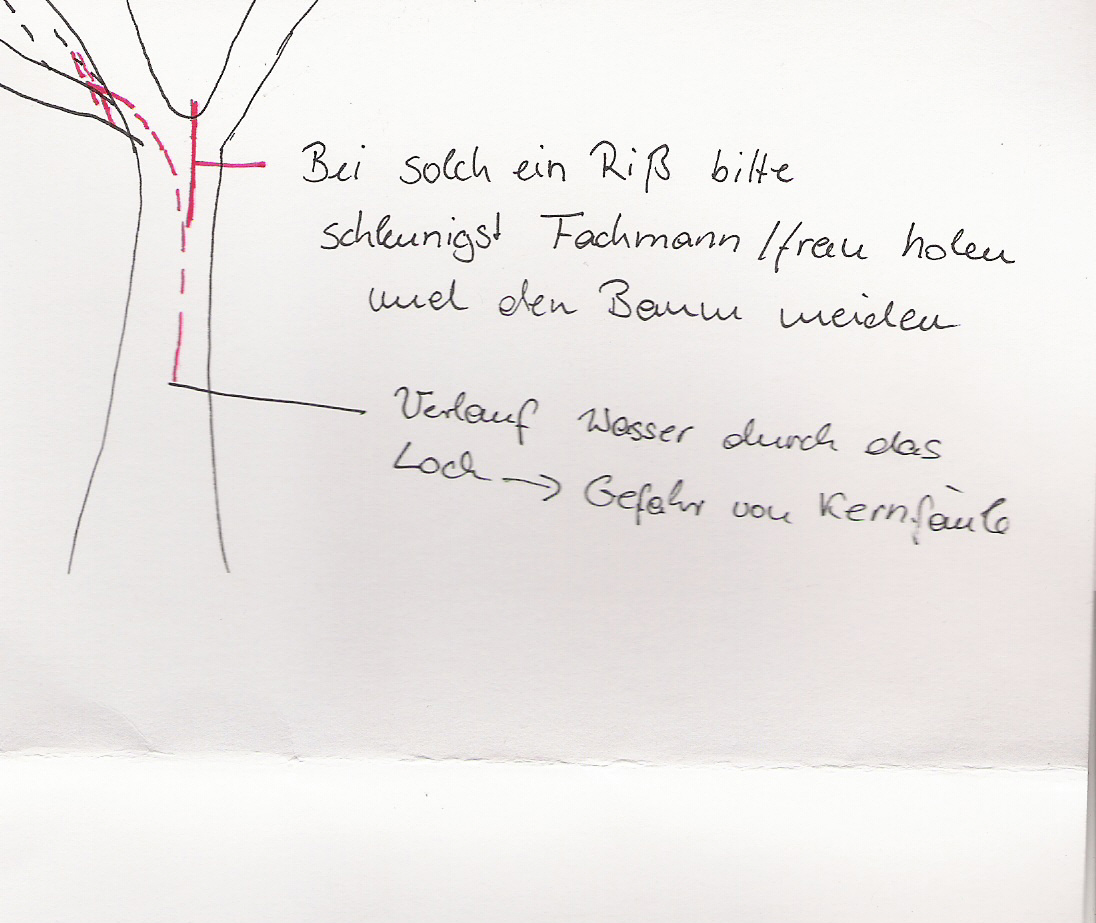 Bei solch ein Riß bitte
schleunigst Fachmann/frau holen
und den Baum meiden
Verlauf Wasser durch das
Loch → Gefahr von Kernfäule